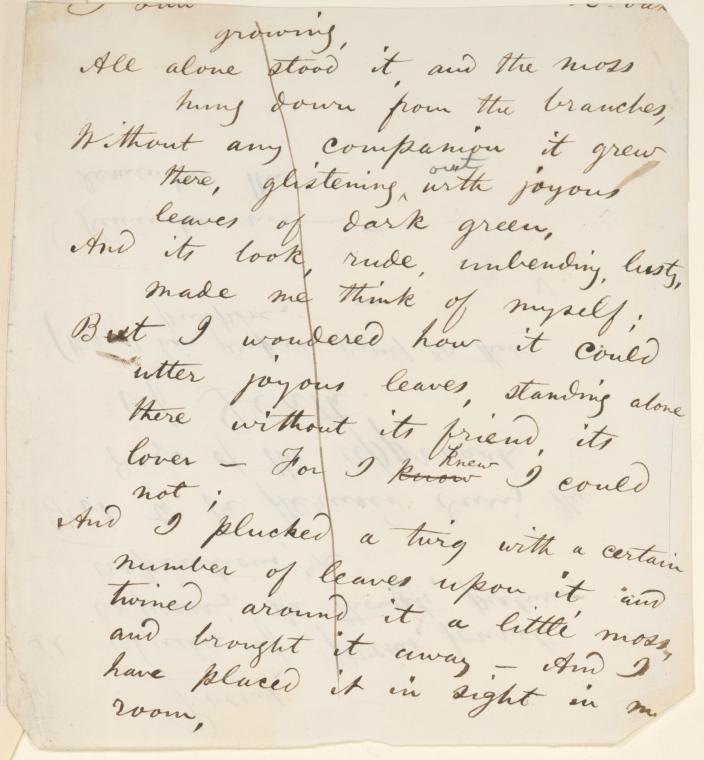 growing,
All alone stood it, and the moss
hung down from the branches,
Without any companion it grew
there, glistening out with joyous
leaves of dark green,
And its look, rude, unbending, lusty,
made me think of myself;
But I wondered how it could
utter joyous leaves, standing alone
there without its friend, its
lover — For I know knew I could
not;
And I plucked a twig with a certain
number of leaves upon it, and
twined around it a little moss,
and brought it away — And I
have placed it in sight in m
room,